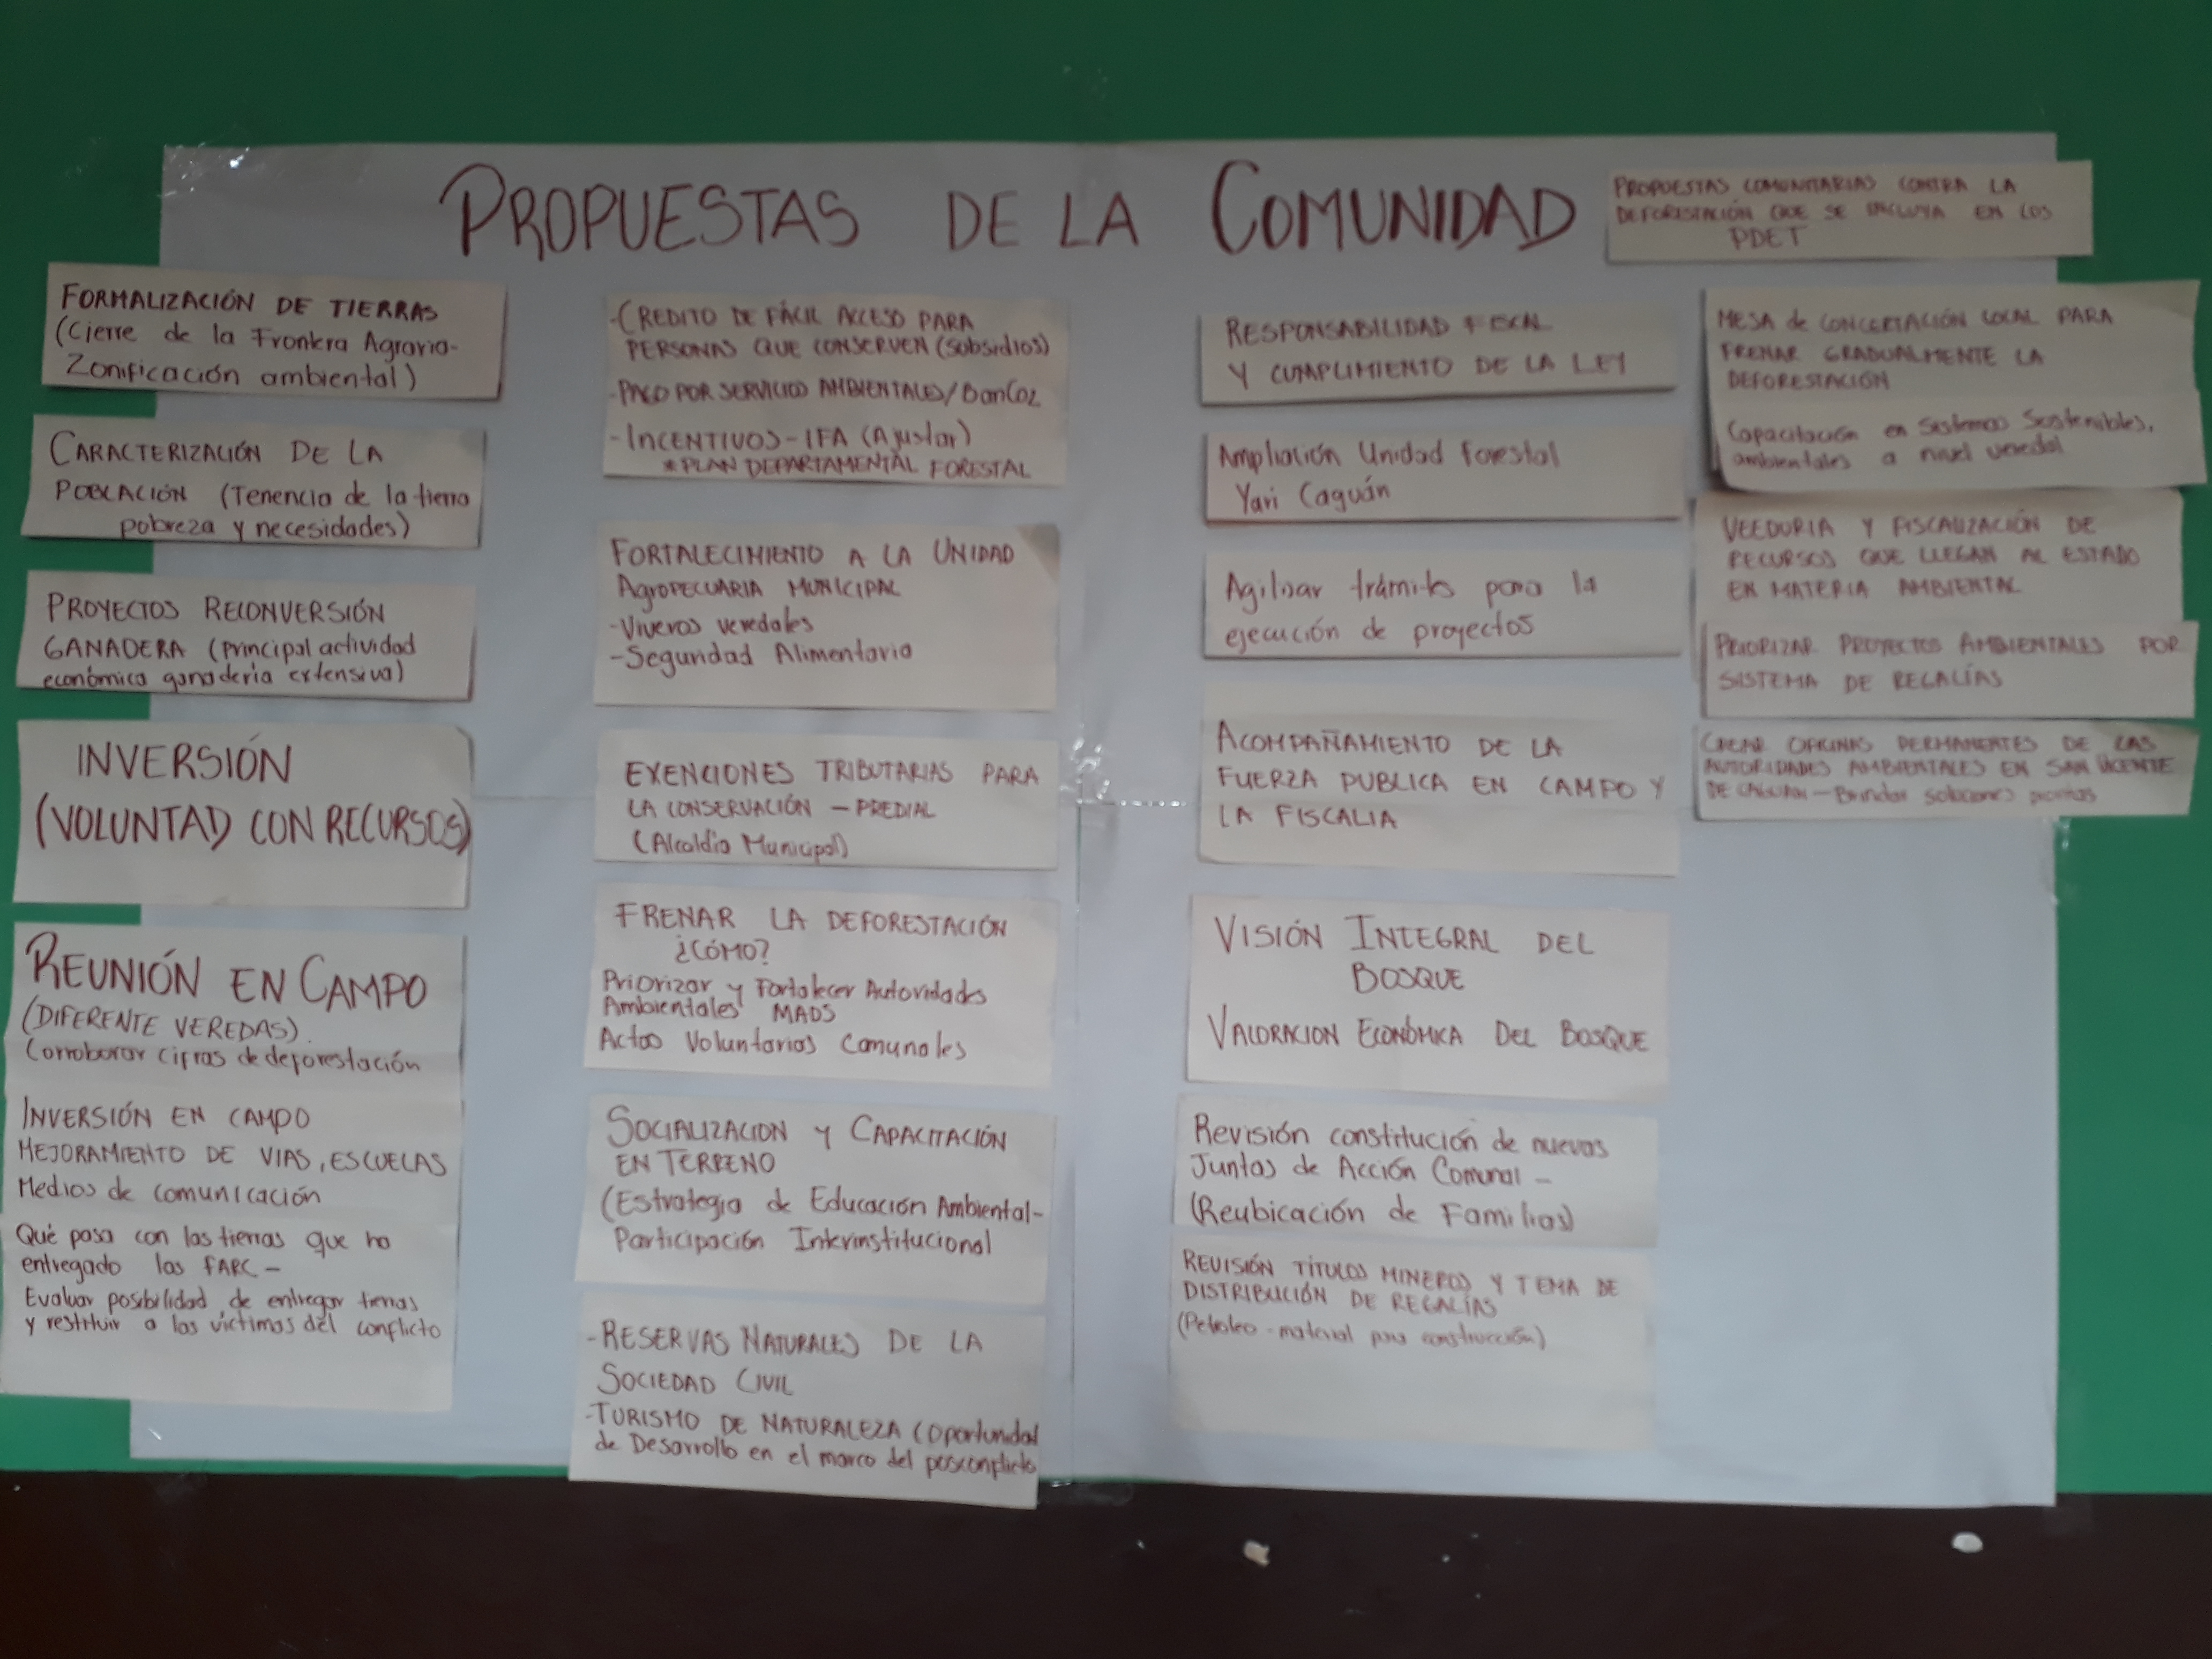 PROPUESTAS DE LA COMUNIDAD
FORMALIZACIÓN DE TIERRAS
(Cierre de la Frontera Agraria-
Zonificación ambiental)
CARACTERIZACIÓN DE LA
POBLACIÓN (Tenencia de la tierra
pobreza y necesidades)
PROYECTOS RECONVERSIÓN
GANADERA (principal actividad
económica ganadería extensiva)
INVERSIÓN
(VOLUNTAD CON RECURSOS)
REUNIÓN EN CAMPO
(DIFERENTE VEREDAS).
Corroborar cifras de deforestación
INVERSIÓN EN CAMPO
MEJORAMIENTO DE VIAS, ESCUELAS
Medios de comunicación
Qué pasa con las tierras que ha
entregado las FARC -
Evaluar posibilidad de entregar tierras
y restituir a las víctimas del conflicto
-CREDITO DE FÁCIL ACCESO PARA
PERSONAS QUE CONSERVEN (Subsidios)
-PAGO POR SERVICIOS AMBIENTALES/BanCO2
-INCENTIVOS - IFA (Ajustar)
*PLAN DEPARTAMENTAL FORESTAL
FORTALECIMIENTO A LA UNIDAD
AGROPECUARIA MUNICIPAL
-Viveros veredales
-Seguridad Alimentaria
EXENCIONES TRIBUTARIAS PARA
LA CONSERVACIÓN - PREDIAL
(Alcaldía Municipal)
FRENAR LA DEFORESTACIÓN
¿CÓMO?
Priorizar y Fortalecer Autoridades
Ambientales MADS
Actos Voluntarios Comunales
SOCIALIZACION y CAPACITACIÓN
EN TERRENO
(Estrategia de Educación Ambiental-
Participación Interinstitucional
-RESERVAS NATURALES DE LA
SOCIEDAD CIVIL
-TURISMO DE NATURALEZA (Oportunidad
de Desarrollo en el marco del posconflicto
RESPONSABILIDAD FISCAL
Y CUMPLIMIENTO DE LA LEY
Ampliación Unidad Forestal
Yari Caguán
Agilizar trámites para la
ejecución de proyectos
ACOMPAÑAMIENTO DE LA
FUERZA PUBLICA EN CAMPO Y
LA FISCALIA
VISIÓN INTEGRAL DEL
BOSQUE
VALORACION ECONÓMICA DEL BOSQUE
Revisión constitución de nuevas
Juntas de Acción Comunal -
(Reubicación de Familias)
REVISIÓN TÍTULOS MINEROS Y TEMA DE
DISTRIBUCIÓN DE REGALÍAS
(Petroleo - material para construcción)
PROPUESTAS COMUNITARIAS CONTRA LA
DEFORESTACIÓN QUE SE INCLUYA EN LOS
PDET
MESA de CONCERTACIÓN LOCAL PARA
FRENAR GRADUALMENTE LA
DEFORESTACIÓN
Capacitación en Sistemas Sostenibles,
ambientales a nivel veredal
VEEDURIA Y FISCALIZACIÓN DE
RECURSOS QUE LLEGAN AL ESTADO
EN MATERIA AMBIENTAL
PRIORIZAR PROYECTOS AMBIENTALES POR
SISTEMA DE REGALÍAS
CREAR OFICINAS PERMANENTES DE LAS
AUTORIDADES AMBIENTALES EN SAN VICENTE
DE CAGUAN - Brindar soluciones prontas